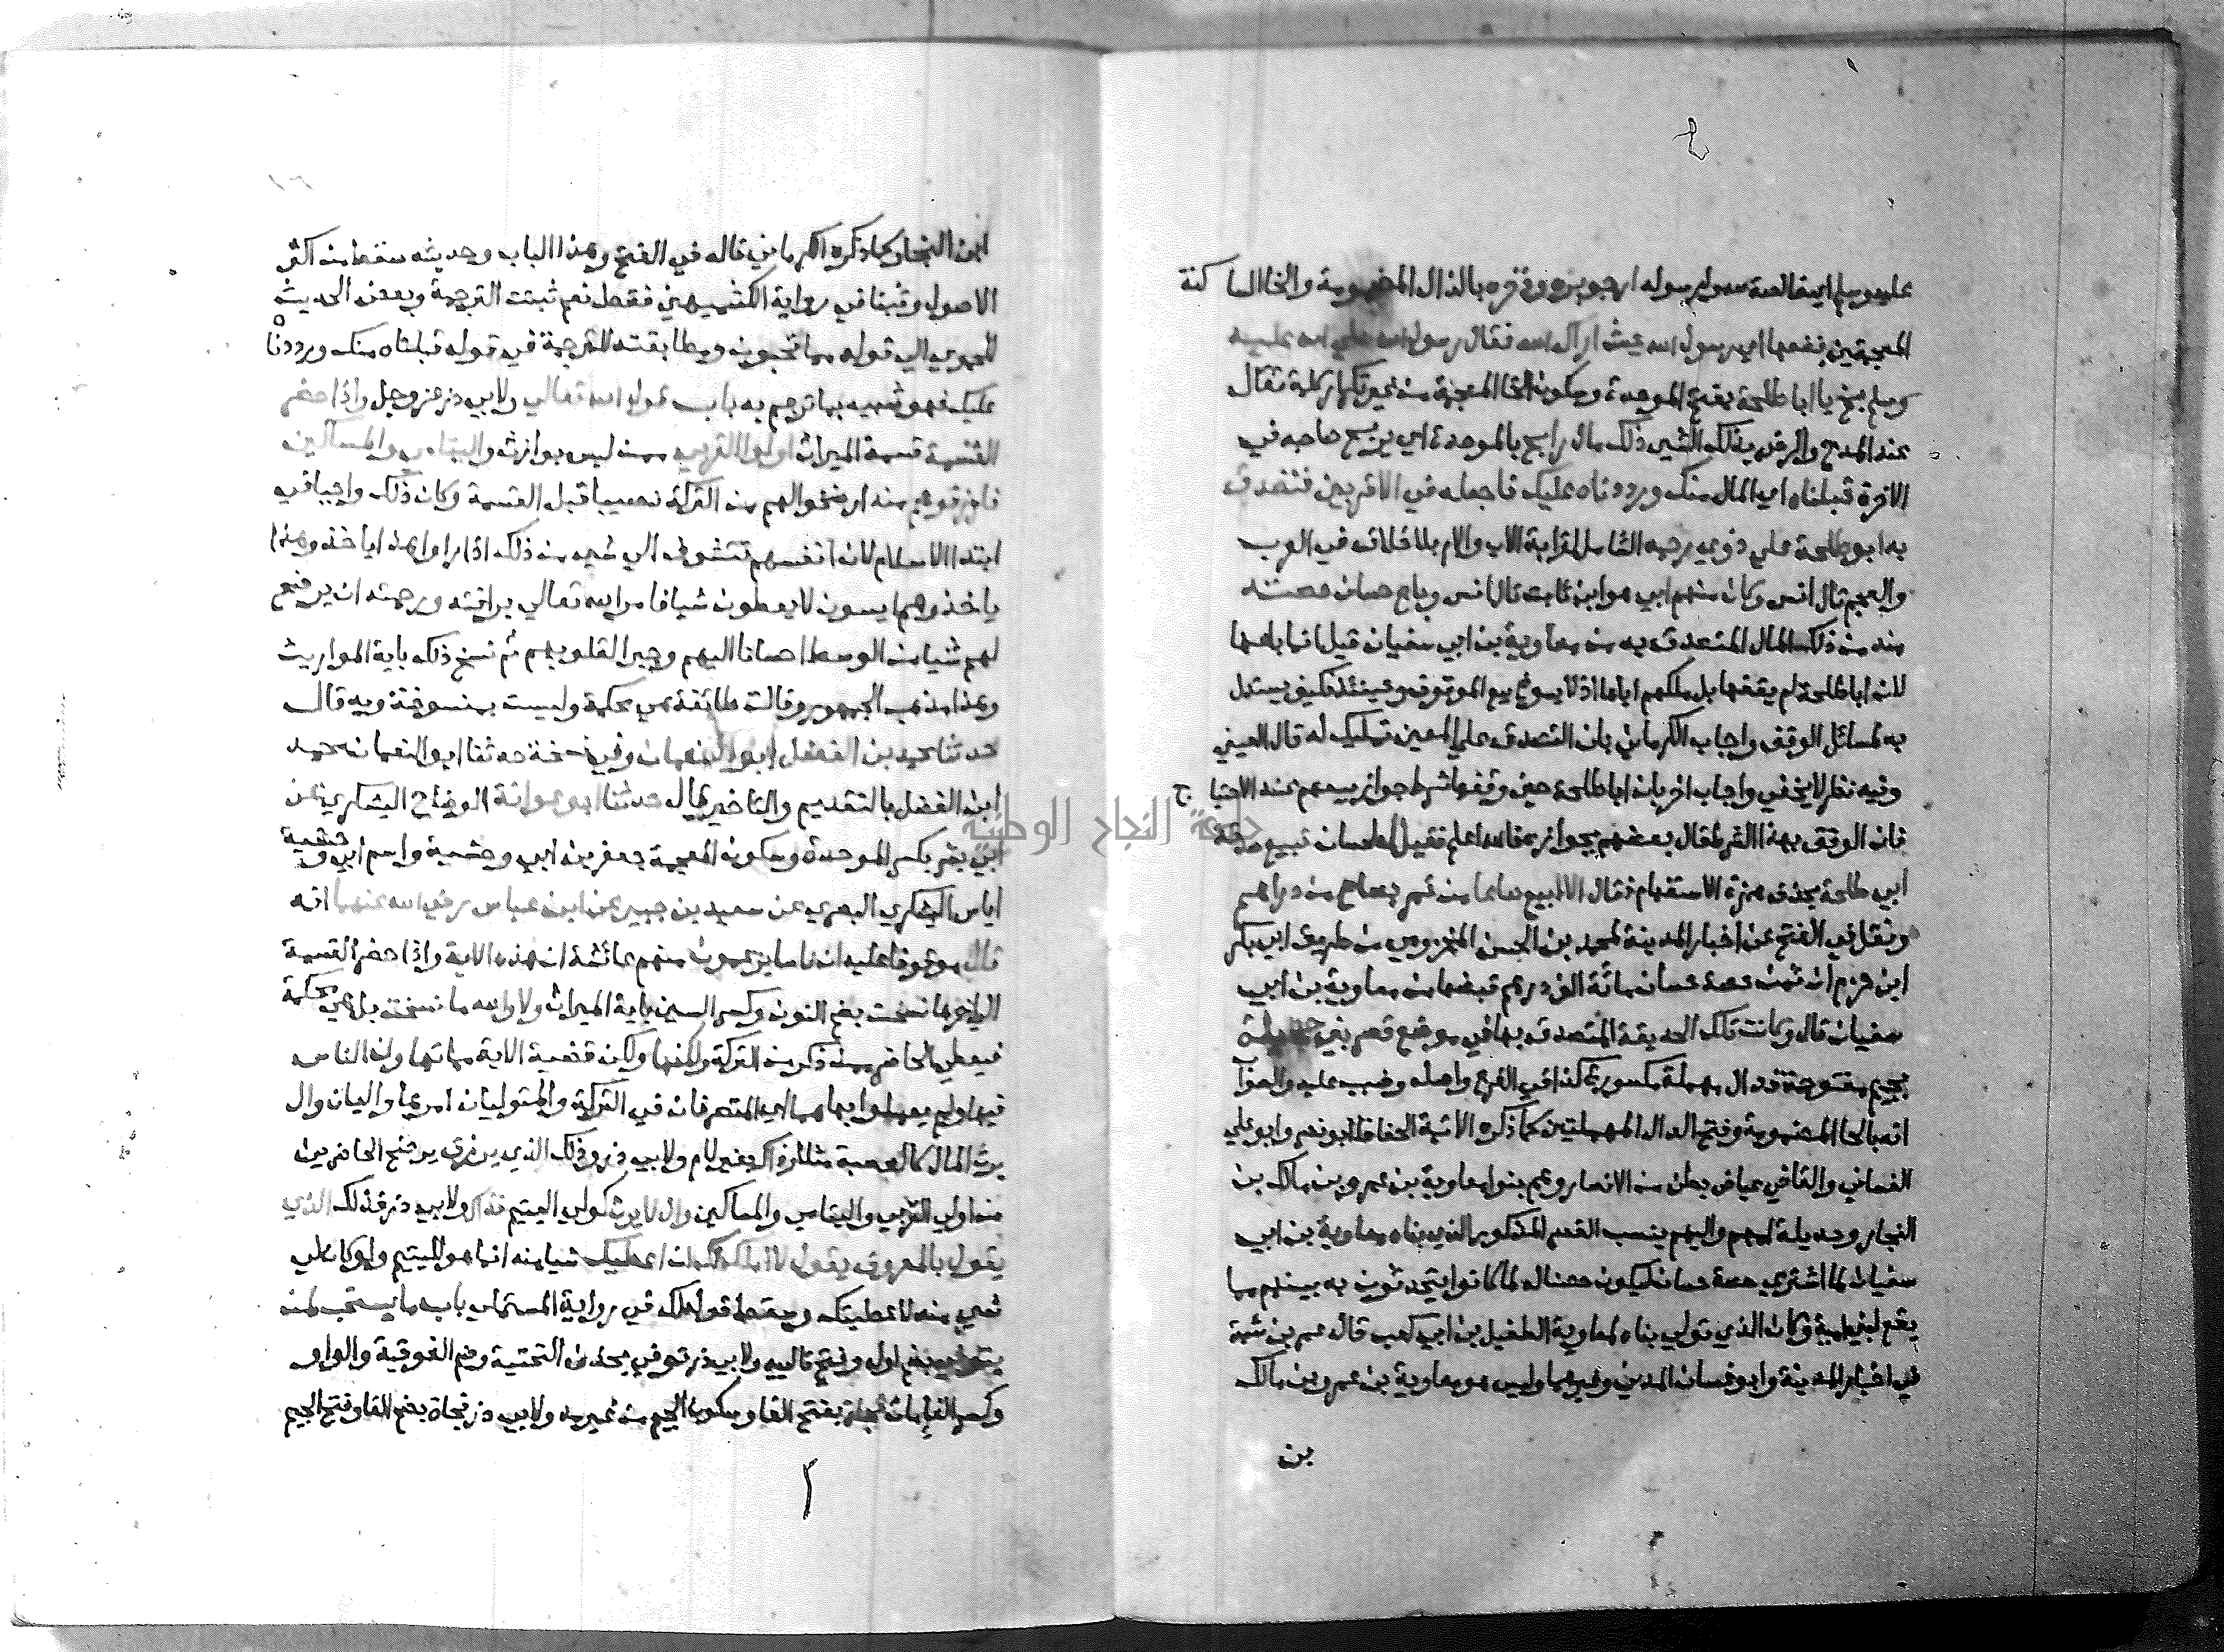 عليه وسلم اي خالصة لله ولرسوله ارجو بره وذخره بالذال المضمومة والخا الساكنة
المعجمتين فضعها اي رسول الله حيث اراك الله فقال رسول الله صلي الله عليه
وسلم بخ يا ابا طلحة بفتح الموحدة وسكون الخا المعجمة من غير تكرار كلمة تقال
عند المدح والرضي بذلك الشي ذلك مال رابح بالموحدة اي يربح صاحبه في
الاخرة قبلناه اي المال منك ورددناه عليك فاجعله في الاقربين فتصدق
به ابو طلحة علي ذوي رحمه الشامل لقرابة الاب والام بلا خلاف في العرب
والعجم قال انس وكان منهم ابي هو ابن ثابت قال انس وباع حسان حصته
منه من ذلك المال المتصدق به من معاوية بن ابي سفيان قيل انما باعها
لان ابا طلحة لم يقفها بل ملكهم اياها اذ لا يسوغ بيع الموقوف وحينئذ فكيف يستدل
به لمسائل الوقف واجاب الكرماني بان التصدق علي المعين تمليك له قال العيني
وفيه نظر لا يخفي واجاب اخر بان ابا طلحة حين وقفها شرط جواز بيعهم عند الاحتيا ج
فان الوقف بهذا الشرط قال بعضهم بجوازه والله اعلم فقيل لحسان تبيع صدقة
ابي طلحة بحذف همزة الاستفهام فقال الا ابيع صاعا من تمر بصاع من دراهم
ونقل في الفتح عن اخبار المدينة لمحمد بن الحسن المخزومي من طريق ابي بكر
ابن حزم ان ثمن حصة حسان مائة الف درهم قبضها من معاوية بن ابي
سفيان قال وكانت تلك الحديقة المتصدق بها في موضع قصر بني جديلة
بجيم مفتوحة فدال مهملة مكسورة كذا في الفرع واصله وضبب عليه والصواب
انه بالحا المضمومة وفتح الدال المهملتين كما ذكره الائمة الحفاظ ابو نصر وابو علي
الغساني والقاضي عياض بطن من الانصار وهم بنو معاوية بن عمرو بن مالك بن
النجار وحديلة امهم واليهم ينسب القصر المذكور الذي بناه معاوية بن ابي
سفيان لما اشتري حصة حسان ليكون حصنا له لما كانوا يتحدثون به بينهم مما
يقع لبني امية وكان الذي تولي بناه لمعاوية الطفيل بن ابي كعب قاله عمر بن شبة
في اخبار المدينة وابو غسان المدني وغيرهما وليس هو معاوية بن عمرو بن مالك
بن
ابن النجار كما ذكره الكرماني قاله في الفتح وهذا الباب وحديثه سقطا من اكثر
الاصول وثبتا في رواية الكشميهني فقط نعم ثبتت الترجمة وبعض الحديث
للحموي الي قوله مما تحبون ومطابقته للترجمة في قوله قبلناه منك ورددناه
عليك فهو شبيه بما ترجم به باب قول الله تعالي ولابي ذر عز وجل واذا حضر
القسمة قسمة الميراث اولوا القربي ممن ليس بوارث واليتامي والمساكين
فارزقوهم منه ارضخوا لهم من التركة نصيبا قبل القسمة وكان ذلك واجبا في
ابتدا الاسلام لان انفسهم تتشوف الي شي من ذلك اذا راوا هذا ياخذ وهذا
ياخذ وهم ايسون لا يعطون شيا فامر الله تعالي برافته ورحمته ان يرضخ
لهم شيا من الوسط احسانا اليهم وجبرا لقلوبهم ثم نسخ ذلك باية المواريث
وهذا مذهب الجمهور وقالت طائفة هي محكمة وليست بمنسوخة وبه قال
حدثنا محمد بن الفضل ابو النعمان وفي نسخة حدثنا ابو النعمان محمد
ابن الفضل بالتقديم والتاخير قال حدثنا ابو عوانة الوضاح اليشكري عن
ابي بشر بكسر الموحدة وسكون المعجمة جعفر بن ابي وحشية واسم ابي وحشية
اياس اليشكري البصري عن سعيد بن جبير عن ابن عباس رضي الله عنهما انه
قال موقوفا عليه ان ناسا يزعمون منهم عائشة ان هذه الاية واذا حضر القسمة
الي اخرها نسخت بضم النون وكسر السين باية الميراث ولا والله ما نسخت بل هي محكمة
فيعطي الحاضر ممن ذكر من التركة ولكنها ولكن قضية الاية مما تهاون الناس
فيها ولم يعملوا بها هما اي المتصرفان في التركة والمتوليان امرها واليان وال
يرث المال كالعصبة مثلا وذاك بغير لام ولابي ذر وذلك الذي يرزق يرضخ الحاضرين
من اولي القربي واليتامي والمساكين وال لا يرث كولي اليتيم فذاك ولابي ذر فذلك الذي
يقول بالمعروف يقول لا املك لك ان اعطيك شيا منه انما هو لليتيم ولو كان لي
شي منه لاعطيتك وسقط قوله لك في رواية المستملي باب ما يستحب لمن
يتوفي بضم اوله وفتح ثانيه ولابي ذر توفي بحذف التحتية وضم الفوقية والواو
وكسر الفا مات فجاة بفتح الفا وسكون الجيم من غير مد ولابي ذر فجاة بضم الفا وفتح الجيم